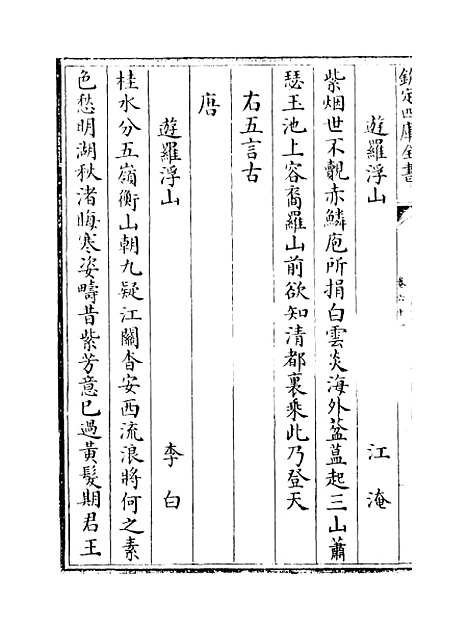 欽定四庫全書
卷六十
遊羅浮山　江淹
紫烟世不覿赤鱗庖所捐白雲炎海外葢葢起三山蕭
瑟玉池上容裔羅山前欲知清都裏乘此乃登天
右五言古
唐
遊羅浮山　李白
桂水分五嶺衡山朝九疑江關杳安西流浪將何之素
色愁明湖秋渚晦寒姿疇昔紫芳意已過黃髮期君王